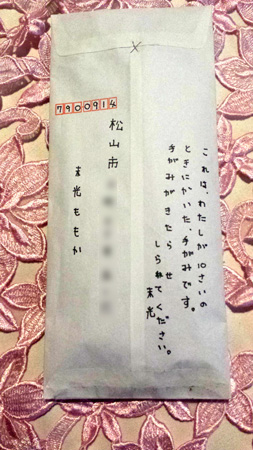 ×
これは、わたしが10さいの
ときにかいた、手がみです。
手がみがきたら せ
しられてください。
末光
7900914
松山市
末光ももか